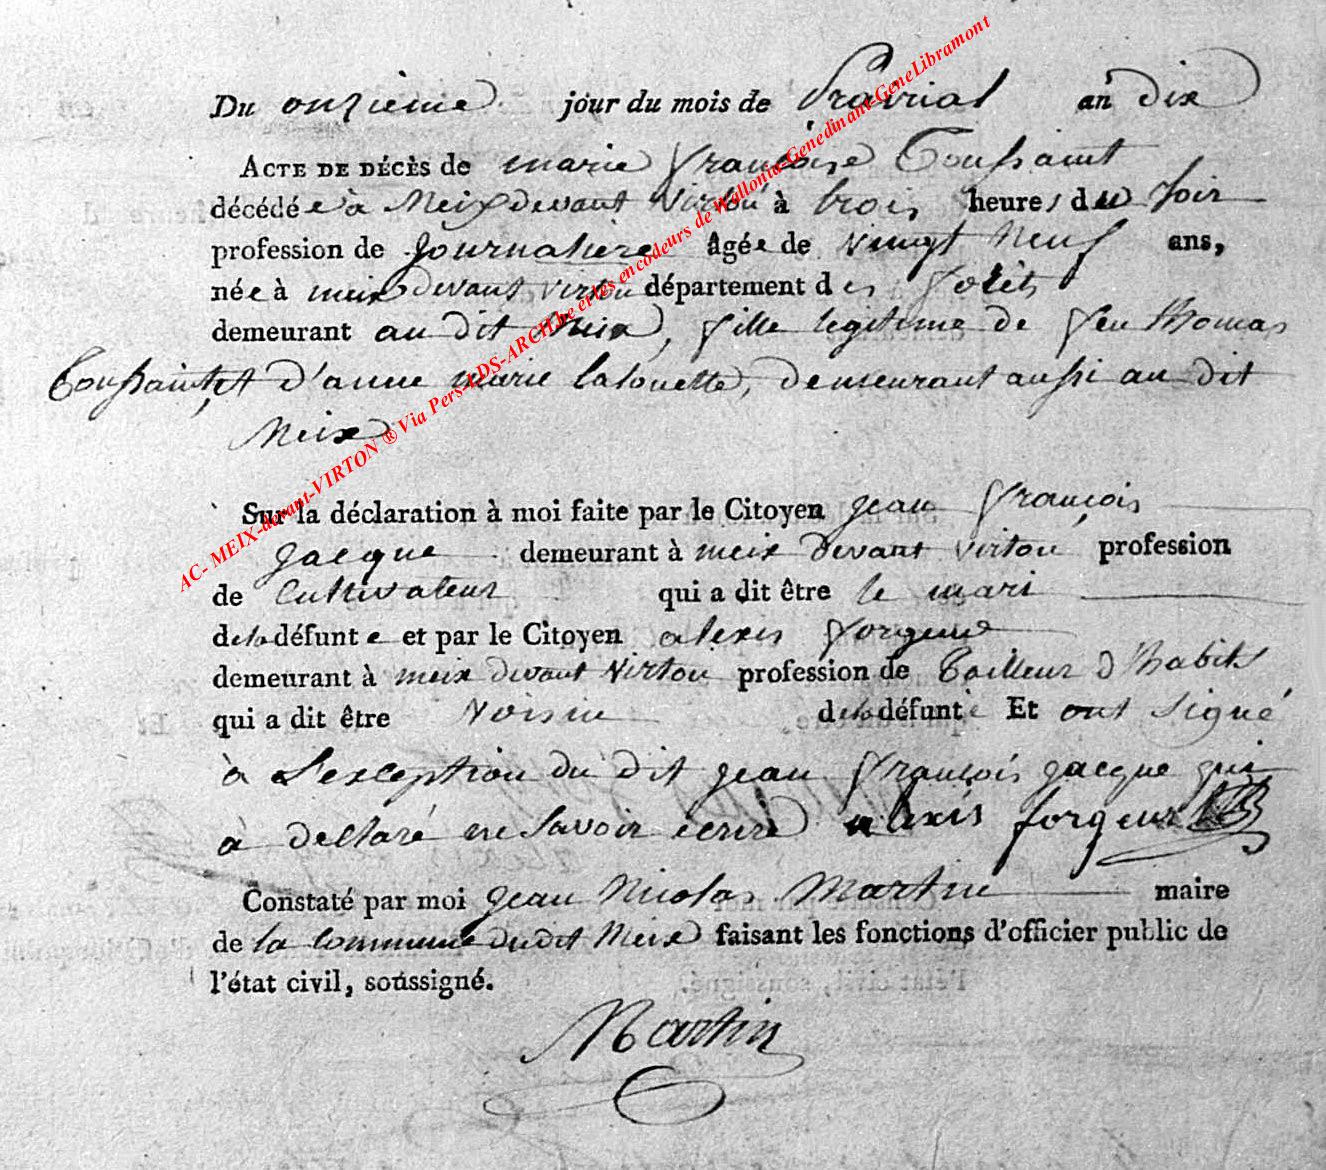 Du onzieme jour du mois de Prairial an dix
ACTE DE DÉCÈS de marie françoise Toussaint
décédée à Meix devant Virton à trois heures du soir
profession de journaliere âgée de vingt neuf ans,
née à meix devant virton département des forêts
demeurant au dit Meix, fille legitime de feu thomas
Toussaint, et d'anne marie lalouette, demeurant aussi au dit
Meix
Sur la déclaration à moi faite par le Citoyen jean françois
jacque demeurant à meix devant virton profession
de Cultivateur qui a dit être le mari
de la défunte et par le Citoyen alexis forgeur
demeurant à meix devant Virton profession de tailleur d'habits
qui a dit être Voisin de la défunte Et ont signé
à l'exception du dit jean françois jacque qui
à déclaré ne savoir écrire alexis forgeur
Constaté par moi jean Nicolas Martin maire
de la commune dudit Meix faisant les fonctions d'officier public de
l'état civil, soussigné.
Martin
AC- MEIX-devant-VIRTON ® Via Pers-LDS-ARCH.be et les encodeurs de Wallonia-Genedinant-GeneLibramont